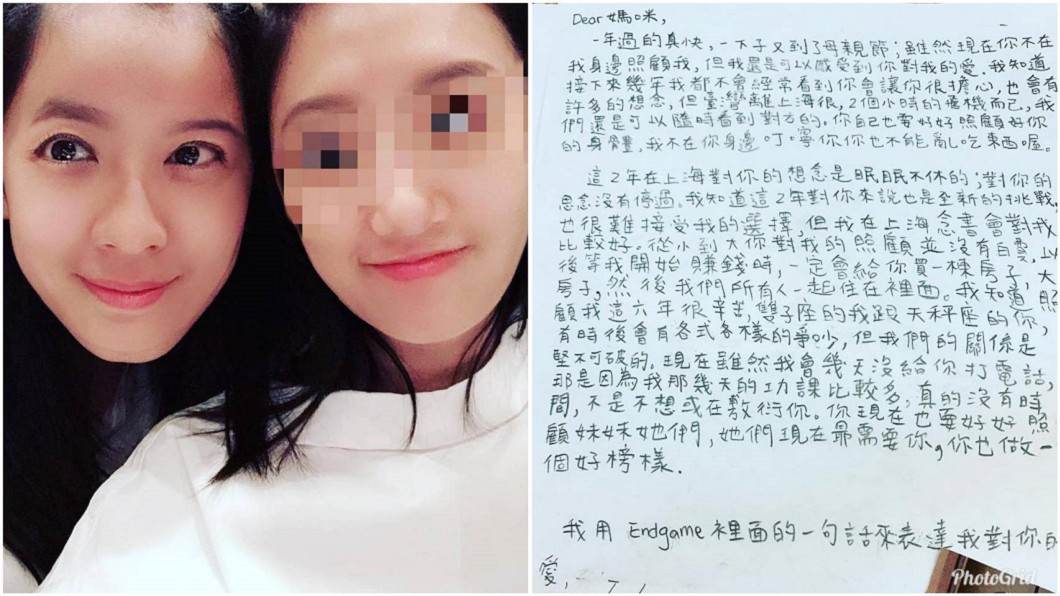 Dear 媽咪,
一年過的真快,一下子又到了母親節;雖然現在你不在
我身邊照顧我,但我還是可以感受到你對我的愛.我知道
接下來幾年我都不會經常看到你會讓你很擔心,也會有
許多的想念,但臺灣離上海很,2個小時的飛機而已,我
們還是可以隨時看到對方的.你自己也要好好照顧好你
的身體,我不在你身邊叮嚀你你也不能亂吃東西喔.
這2年在上海對你的想念是眠眠不休的;對你的
思念沒有停過.我知道這2年對你來說也是全新的挑戰,
也很難接受我的選擇,但我在上海念書會對我
比較好。從小到大你對我的照顧並沒有白費,以
後等我開始賺錢時,一定會給你買一棟房子,大
房子,然後我們所有人一起住在裡面。我知道照
顧我這六年很辛苦,雙子座的我跟天秤座的你,
有時後會有各式各樣的爭吵,但我們的關係是
堅不可破的.現在雖然我會幾天沒給你打電話,
那是因為我那幾天的功課比較多,真的沒有時
間,不是不想或在敷衍你。你現在也要好好照
顧妹妹她們,她們現在最需要你,你也做一
個好榜樣.
我用 Endgame 裡面的一句話來表達我對你的
愛,
PhotoGrid